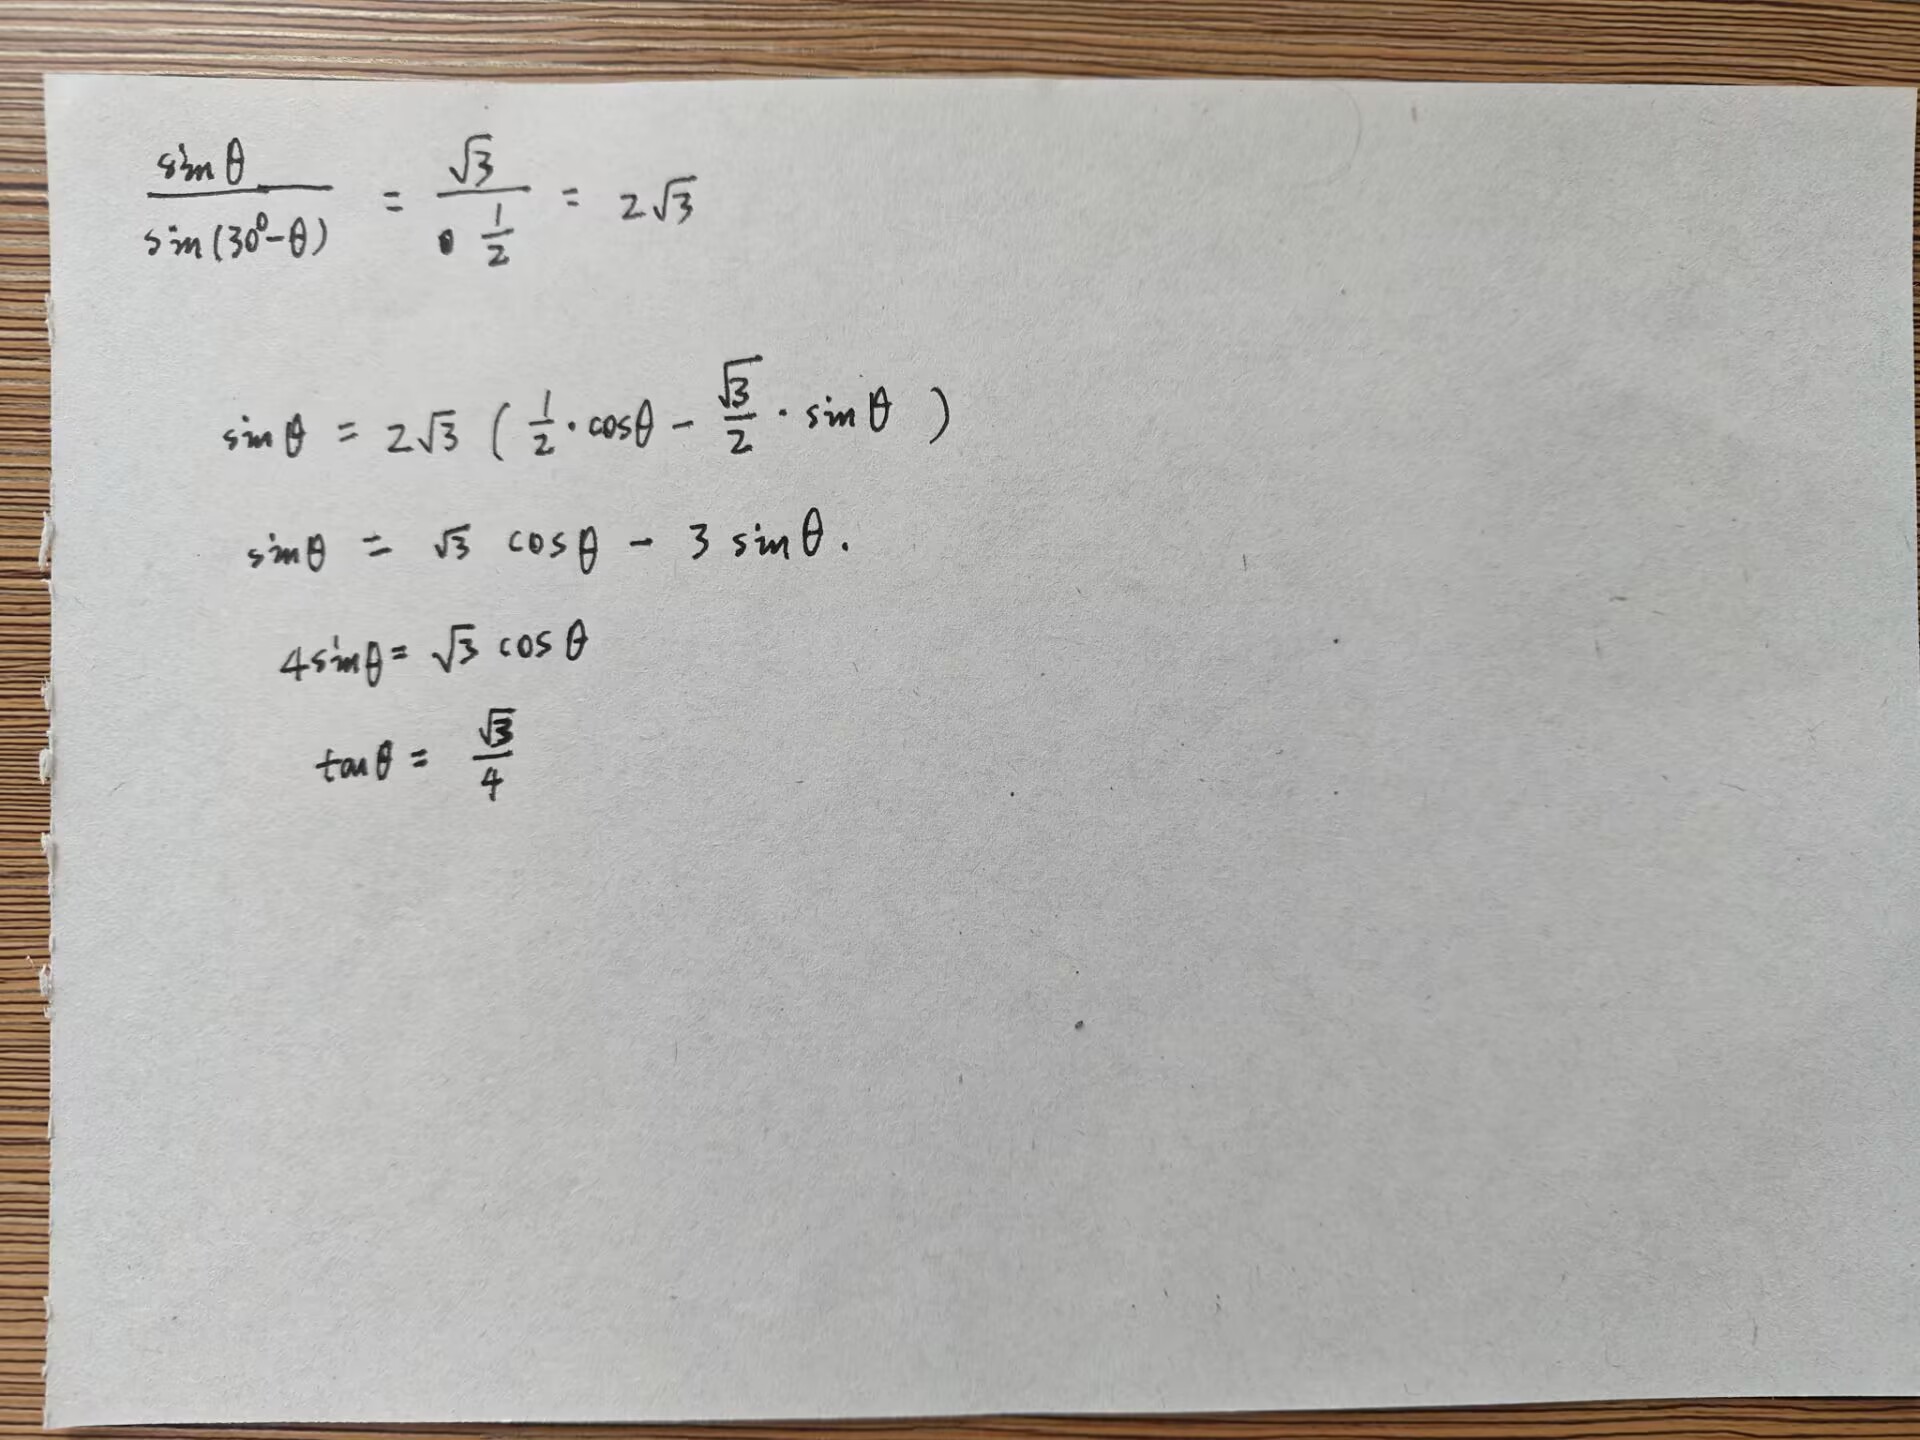 sinθ / sin(30°-θ) = √3 / (1/2) = 2√3
sinθ = 2√3 ( 1/2 · cosθ - √3/2 · sinθ )
sinθ = √3 cosθ - 3 sinθ.
4sinθ = √3 cosθ
tanθ = √3/4